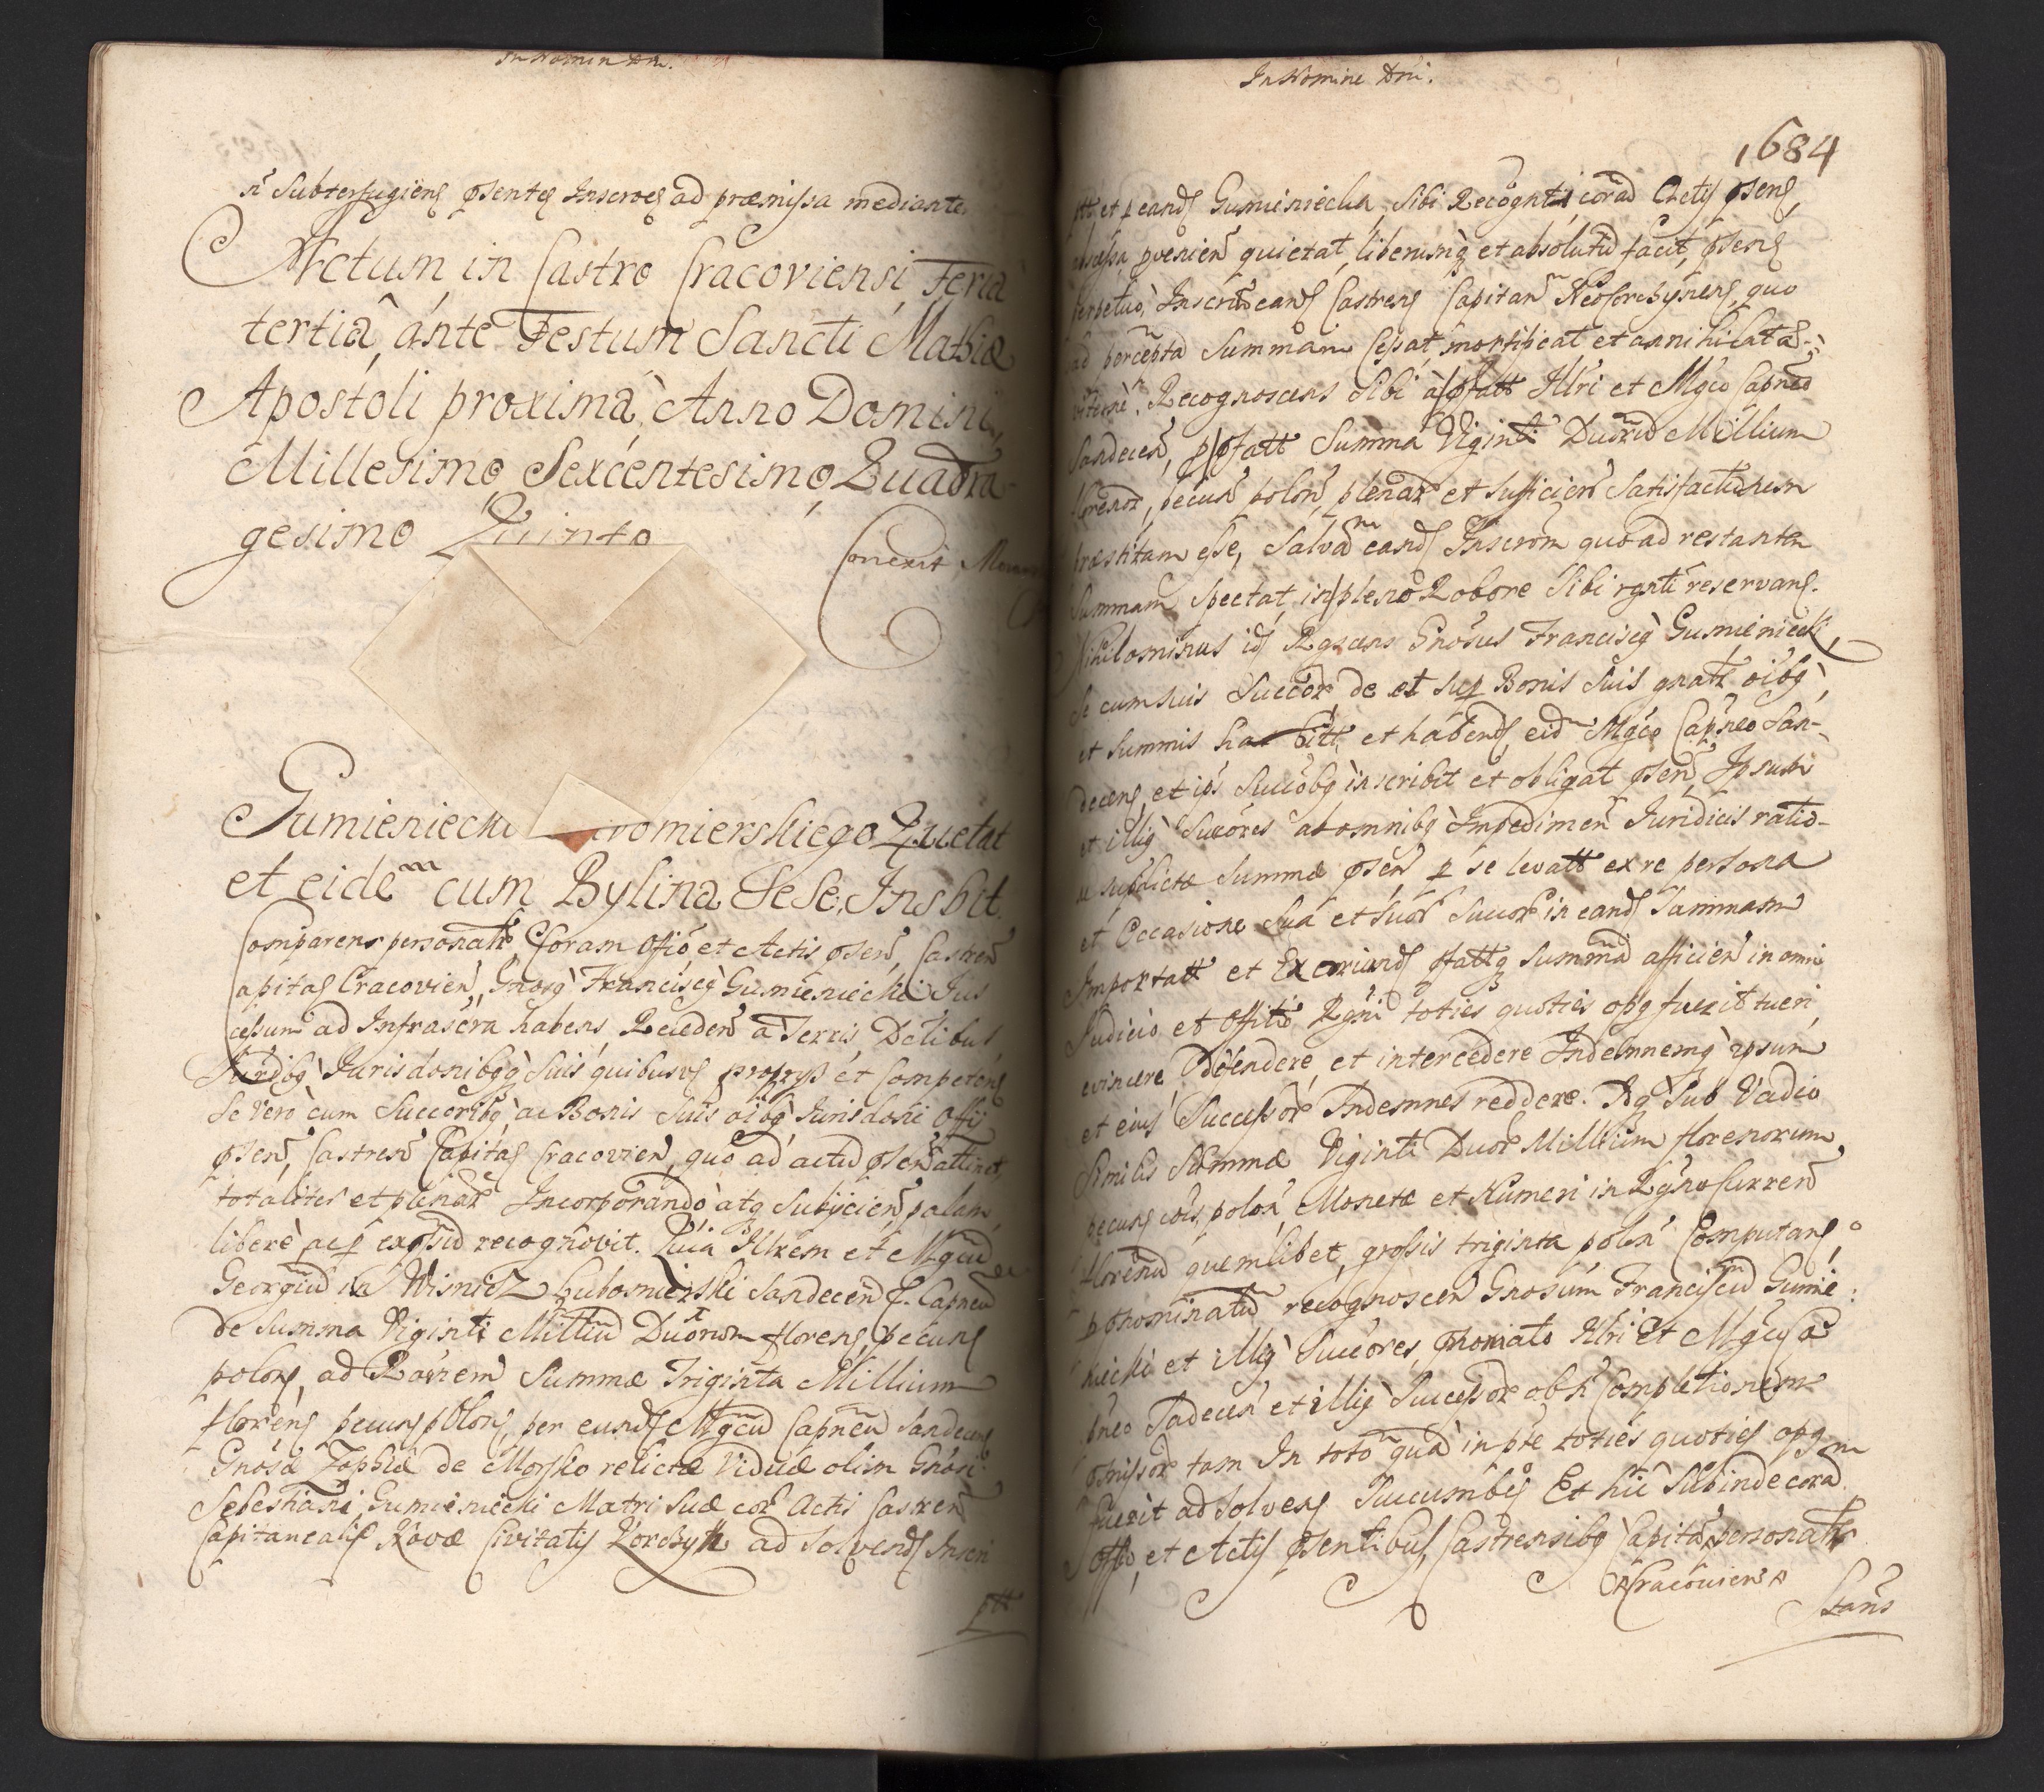 In Nomin Dni.
n Subterfugiens psentes Inscroes ad præmissa mediante
Actum in Castro Cracoviensi Feria
tertia ante Festum Sancti Mathiæ
Apostoli proxima, Anno Domini
Millesimo Sexcentesimo Quadra-
gesimo Quinto
Conexit
Gumieniecki omierskiego Quietat
et eidem cum Bylina Sese Insbit.
Comparens personatr Coram Offio et Actis psen, Castren
Capitas Cracovien, Gnosq Franciscq Gumieniecki Jus
cessum ad Infrascra habens, Receden a Terris, Dctibus
Jurdibq Jurisdonibqq Suis quibusvs proprys et Competens
Se vero cum Succoribq ac Bonis Suis oibq Jurisdoni Offi
psen, Castren Capitas Cracovien, quo ad actu psen attinet,
totaliter et plenar Incorporando atq Subycien, palam
libere ac p expssu recognovit. Quia Illrem et Mgcu
Georgiu in Wisnicz Lubomierski Sandecen Capneu
de Summa Viginti Milliu Duorum florens, pecuns
polons, ad Raonem Summæ Triginta Millium
florens pecuns polons, per eunds Mgcu Capneu Sandecens
Gnosæ Zophiæ de Morsko relictæ Viduæ olim Gnosi
Sebestiani Gumieniecki Matri Suæ cor Actis Castren
Capitanealis Novæ Civitatis Korczyn ad Solvends Inscri
ptt
In Nomine Dni.
1684
ptt et p eands Gumieniecka, Sibi Recognti, corad Actis psens,
provenien quietat, liberumq et absolutu facit, psens
perpetuo, Inscrom eands Castrens Capitan Neoforczynens, quo
ad percepta Summam Cessat, mortificat et annihilat æ-
viterne. Recognoscens Sibi a pfatt Illri et Mgco Capneo
Sandecen, pfatt Summa Viginti Duoru Millium
florenor, pecun polon, plenar et Sufficien Satisfactionem
præstitam esse, Salva eands Inscrom quo ad restanten
Summam Spectat, in pleno Robore Sibi rgnti reservans.
Nihilominus ids Rgscens Gnosus Franciscq Gumieniecki,
Se cum suis Succor, de et sup Bonis Suis gnatr oibq,
et Summis habitt et habends, eid Mgco Capneo San-
decens, et ips Succobq inscribit et obligat psen, Ipsum
et illiq Succores ab omnibq Impedimen Juridicis ratio-
ne supdictæ Summæ psen p se levatt ex re persona
et Occasione Sua et Suor Succor in eands Summam
Importatt et Exoriunds pfattq Summa afficien in omni
Judicio et Offitio Rgni toties quoties opq fuerit tueri,
evincere, defendere, et intercedere Indemnemq ipsum
et eius Successor Indemnes reddere. Rq Sub Vadio
Similis Summæ Viginti Duor Millium florenorum
pecuns cois, polon, Monetæ et Numeri in Rgno Curren
florenu quemlibet, grossis triginta polon Computans,
p pnominatu recognoscen Gnosum Franciscu Gumie:
niecki et illiq Succores, pnoniato Illri et Mgco Ca
pneo Sadecen et illiq Successor ob n Completionem
pmissor tam In toto qua in pte toties quoties opq
fuerit ad Solvens Succumbes Et hic Subinde cora
Offo, et Actis psentibus, Castrensibq Capita personatr
Cracoviens
Stans